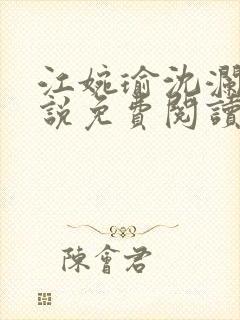 江婉瑜沈瀾
說免費閱讀
陳會君